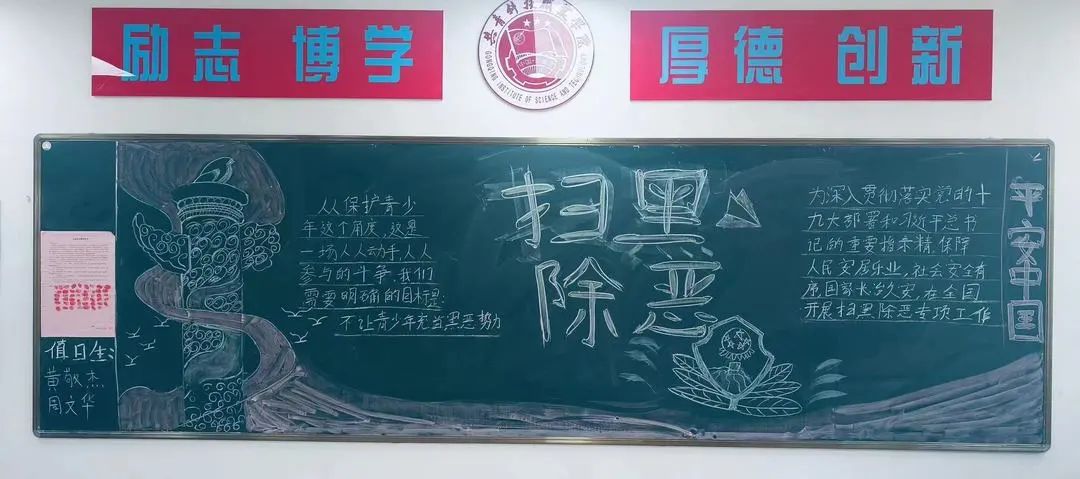 励志 博学
厚德 创新
GONGQING INSTITUTE OF SCIENCE AND TECHNOLOGY
值日生:
黄敬杰
周文华
从保护青少
年这个角度,这是
一场人人动手,人人
参与的斗争,我们
需要明确的目标是:
不让青少年充当黑恶势力
扫黑
除恶
为深入贯彻落实党的十
九大部署和习近平总书
记的重要指示精,保障
人民安居乐业,社会安全有
序国家长治久安,在全国
开展扫黑除恶专项工作
平安中国